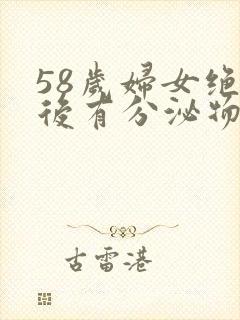 58歲婦女绝
後有分泌物
古雷港